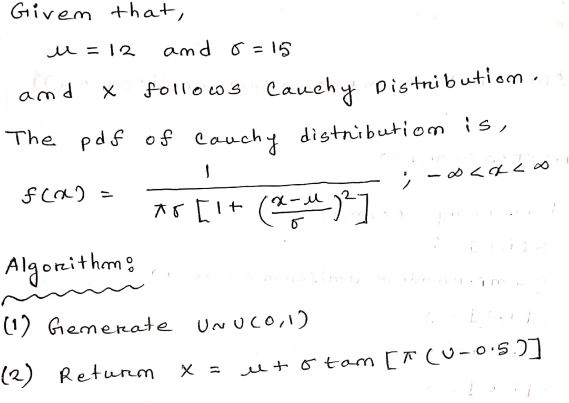 Given that,
μ = 12 and σ = 15
and X follows Cauchy Distribution.
The pdf of Cauchy distribution is,
f(x) = 1 / πσ [1+ (x-μ / σ)²] ; -∞<x<∞
Algorithm:
(1) Generate U~U(0,1)
(2) Return X = μ+σ tan [π(U-0.5)]